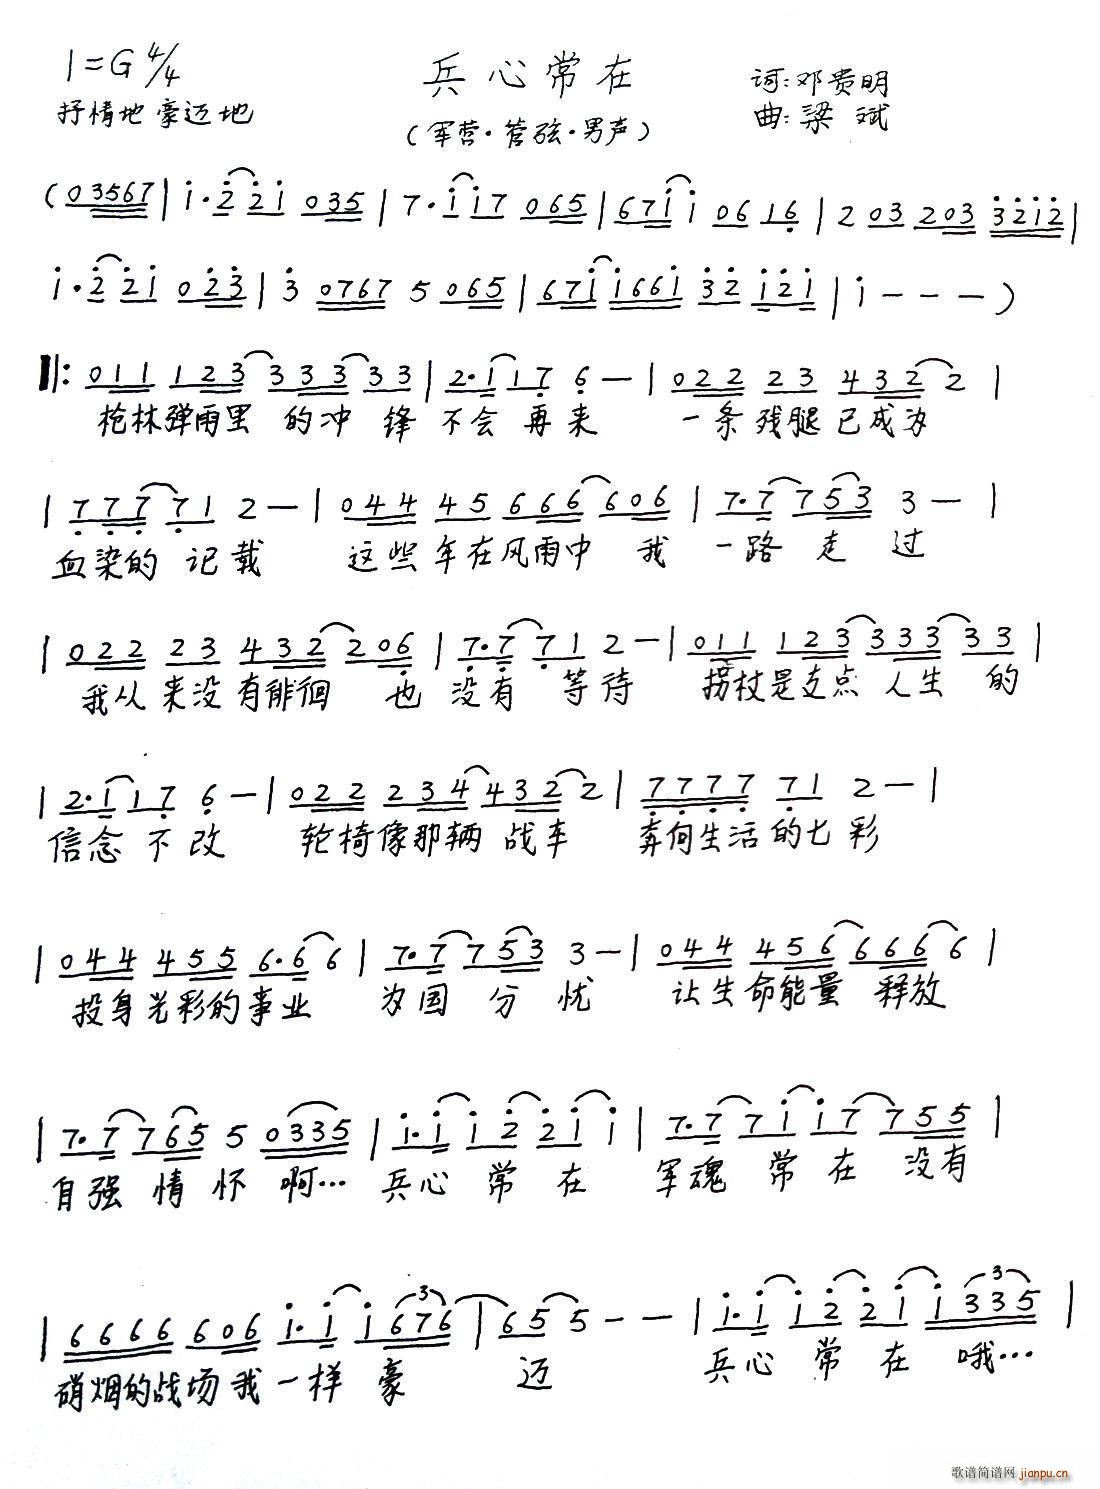 1=G 4/4
兵心常在
词:邓贵明
抒情地 豪迈地
(军营·管弦·男声)
曲:梁斌
(03567|i·22i 035|7·ii7 065|67ii 0616|2 03 203 32i2|
i·22i 023|3 0767 5 065|67ii66i 32 i2i|i---)
‖:011 123 333 33|2·117 6-|022 23 432 2|
枪林弹雨里 的冲 锋 不会 再来 一条残腿已成为
|777 71 2-|044 45 666 606|7·7 753 3-|
血染的 记载 这些年在风雨中 我 一路 走 过
|022 23 432 206|7·7 71 2-|011 123 333 33|
我从来没有徘徊 也 没有 等待 拐杖是支点 人生 的
|2·117 6-|022 234 432 2|7777 71 2-|
信念 不改 轮椅像那辆 战车 奔向生活的七彩
|044 455 6·6 6|7·7 753 3-|044 456 666 6|
投身光彩的事业 为国 分 忧 让生命能量 释放
|7·7 765 5 0335|i·i i2 2i i|7·7 7i i7 755|
自强 情 怀 啊… 兵心 常 在 军魂 常 在 没有
|6666 606 i·i i676|655--|i·i i2 2i i335|
3
3
硝烟的战场我一样 豪 迈 兵心 常 在 哦…
歌谱简谱网 jianpu.cn